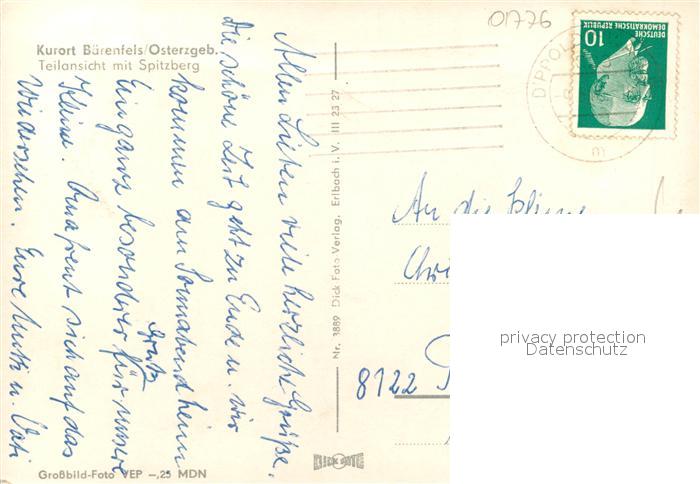 01776
Kurort Bärenfels/Osterzgeb.
Teilansicht mit Spitzberg
Allen Lieben viele herzliche Grüße.
Die schöne Zeit geht zu Ende u. wir
kommen am Sonnabend heim
Ein ganz besonderer Gruß für unsere
Kleine. Oma freut sich auf das
Wiedersehen. Eure Mutti u. Vati
Großbild-Foto VEP -,25 MDN
Nr. 3889 Dick Foto Verlag, Erlbach i. V. III 23 27
DICK FOTO
DEUTSCHE
DEMOKRATISCHE REPUBLIK
10
DIPPOL
m
An die kleine
Chri
8122
privacy protection
Datenschutz